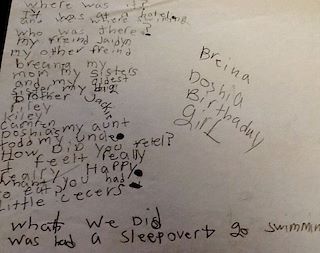 where was it?
it was at a hotel
and we where swimming
who was there?
my freind Jaidyn
my other freind
breana my
mom my sisters
and my oldest
sister my big
brother Jackin
riley
kiley
camren
Doshia my aunt
todd my uncle
How Did you feel?
I feelt really
really Happy
what you had
to eat?
Little cecers
what We Did
was had a Sleepovert go swimming
Breina
Doshia
Birthaday
girl